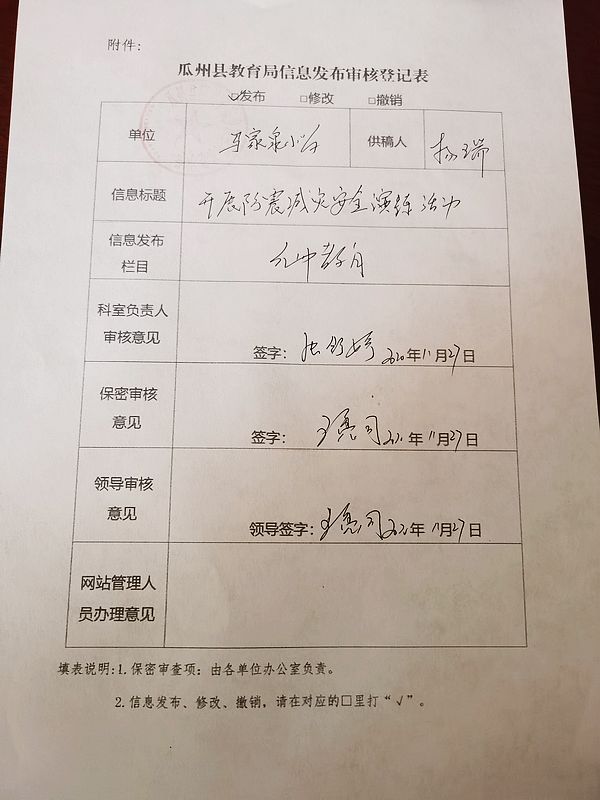 附件：
瓜州县教育局信息发布审核登记表
☑发布 □修改 □撤销
单位 马家泉小学 供稿人 杨瑞
信息标题 开展防震减灾安全演练活动
信息发布
栏目
科室负责人
审核意见
签字： 2020年11月27日
保密审核
意见
签字： 年11月27日
领导审核
意见
领导签字： 年11月27日
网站管理人
员办理意见
填表说明:1.保密审查项：由各单位办公室负责。
2.信息发布、修改、撤销，请在对应的□里打“√”。